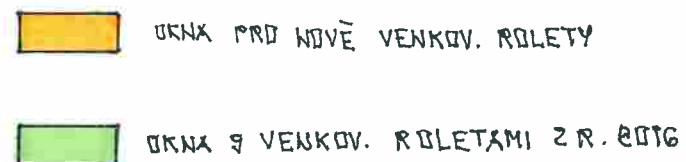 OKNA PRO NOVÉ VENKOV. ROLETY
OKNA S VENKOV. ROLETAMI Z R. 2016